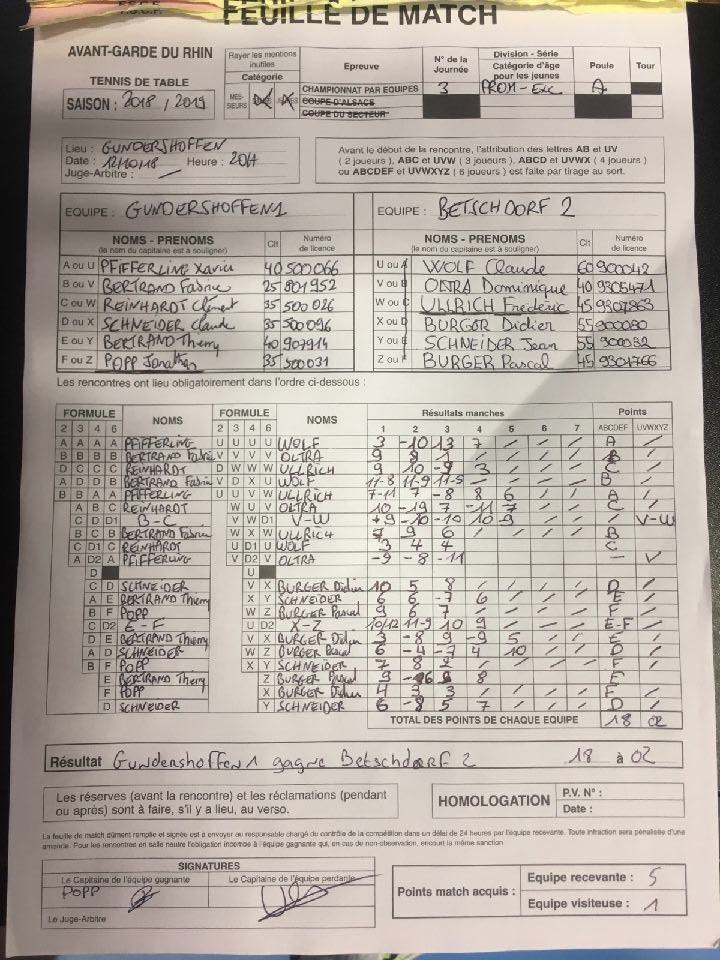 FEUILLE DE MATCH
AVANT-GARDE DU RHIN
TENNIS DE TABLE
SAISON : 2018 / 2019
Rayer les mentions inutiles
Catégorie
MES-SIEURS
Epreuve
CHAMPIONNAT PAR EQUIPES
COUPE D'ALSACE
COUPE DU SECTEUR
N° de la Journée
3
Division - Série
Catégorie d'âge pour les jeunes
PROM-Exc
Poule
A
Tour
Lieu : GUNDERSHOFFEN
Date : 12/10/18 Heure : 20H
Juge-Arbitre :
Avant le début de la rencontre, l'attribution des lettres AB et UV
( 2 joueurs ), ABC et UVW ( 3 joueurs ), ABCD et UVWX ( 4 joueurs )
ou ABCDEF et UVWXYZ ( 6 joueurs ) est faite par tirage au sort.
EQUIPE : GUNDERSHOFFEN 1
NOMS - PRENOMS (le nom du capitaine est à souligner) Clt Numéro de licence
A ou U PFIFFERLING Xavier 40 500066
B ou V BERTRAND Fabrice 25 801952
C ou W REINHARDT Clément 35 500026
D ou X SCHNEIDER Claude 35 500096
E ou Y BERTRAND Thierry 40 907914
F ou Z POPP Jonathan 35 500031
EQUIPE : BETSCHDORF 2
NOMS - PRENOMS (le nom du capitaine est à souligner) Clt Numéro de licence
U ou A WOLF Claude 60 900042
V ou B OLTRA Dominique 40 9305471
W ou C ULLRICH Frédéric 45 9307863
X ou D BURGER Didier 55 900080
Y ou E SCHNEIDER Jean 55 900032
Z ou F BURGER Pascal 45 9301766
Les rencontres ont lieu obligatoirement dans l'ordre ci-dessous :
FORMULE NOMS FORMULE NOMS Résultats manches Points
2 3 4 6 2 3 4 6 1 2 3 4 5 6 7 ABCDEF UVWXYZ
A A A A PFIFFERLING U U U U WOLF 3 -10 13 7 / / / A /
B B B B BERTRAND Fabrice V V V V OLTRA 9 8 1 / / / / B /
D C C C REINHARDT D W W W ULLRICH 9 10 -9 3 / / / C /
A D D B BERTRAND Fabrice V D X U WOLF 11-8 11-9 11-5 / / / / B /
B B A A PFIFFERLING U U V W ULLRICH 7-11 7 -8 8 6 / / A /
A B C REINHARDT W U V OLTRA 10 -19 7 -11 7 / / C /
C D D1 B-C V W D1 V-W +9 -10 -10 10 9 / / V-W
B C B BERTRAND Fabrice W X W ULLRICH 7 9 6 / / / / B /
C D1 C REINHARDT U D1 U WOLF 3 4 4 / / / / C
A D2 A PFIFFERLING V D2 V OLTRA -9 -8 -11 / / / / - V
D U
C D SCHNEIDER V X BURGER Didier 10 5 8 / / / / D /
A E BERTRAND Thierry X Y SCHNEIDER 6 6 -7 6 / / / E /
B F POPP W Z BURGER Pascal 9 6 7 / / / / F /
C D2 E-F U D2 X-Z 10/12 11-9 10 9 / / / E-F /
D E BERTRAND Thierry V X BURGER Didier 3 -8 9 -9 5 / / E /
A D SCHNEIDER W Z BURGER Pascal 6 -4 -7 4 10 / / D /
B F POPP X Y SCHNEIDER 7 8 2 / / / / F /
E BERTRAND Thierry Z BURGER Pascal 9 8 / / / E
F POPP X BURGER Didier 4 3 3 / / / / F /
D SCHNEIDER Y SCHNEIDER 6 -8 5 7 / / / D /
TOTAL DES POINTS DE CHAQUE EQUIPE 18 02
Résultat Gundershoffen 1 gagne Betschdorf 2 18 à 02
Les réserves (avant la rencontre) et les réclamations (pendant
ou après) sont à faire, s'il y a lieu, au verso.
HOMOLOGATION
P.V. N° :
Date :
La feuille de match dûment remplie et signée est à envoyer au responsable chargé du contrôle de la compétition dans un délai de 24 heures par l'équipe recevante. Toute infraction sera pénalisée d'une
amende. Pour les rencontres en salle neutre l'obligation incombe à l'équipe gagnante qui, en cas de non-observation, encourt la même sanction
SIGNATURES
Le Capitaine de l'équipe gagnante
POPP
Le Capitaine de l'équipe perdante
Le Juge-Arbitre
Points match acquis :
Equipe recevante : 5
Equipe visiteuse : 1